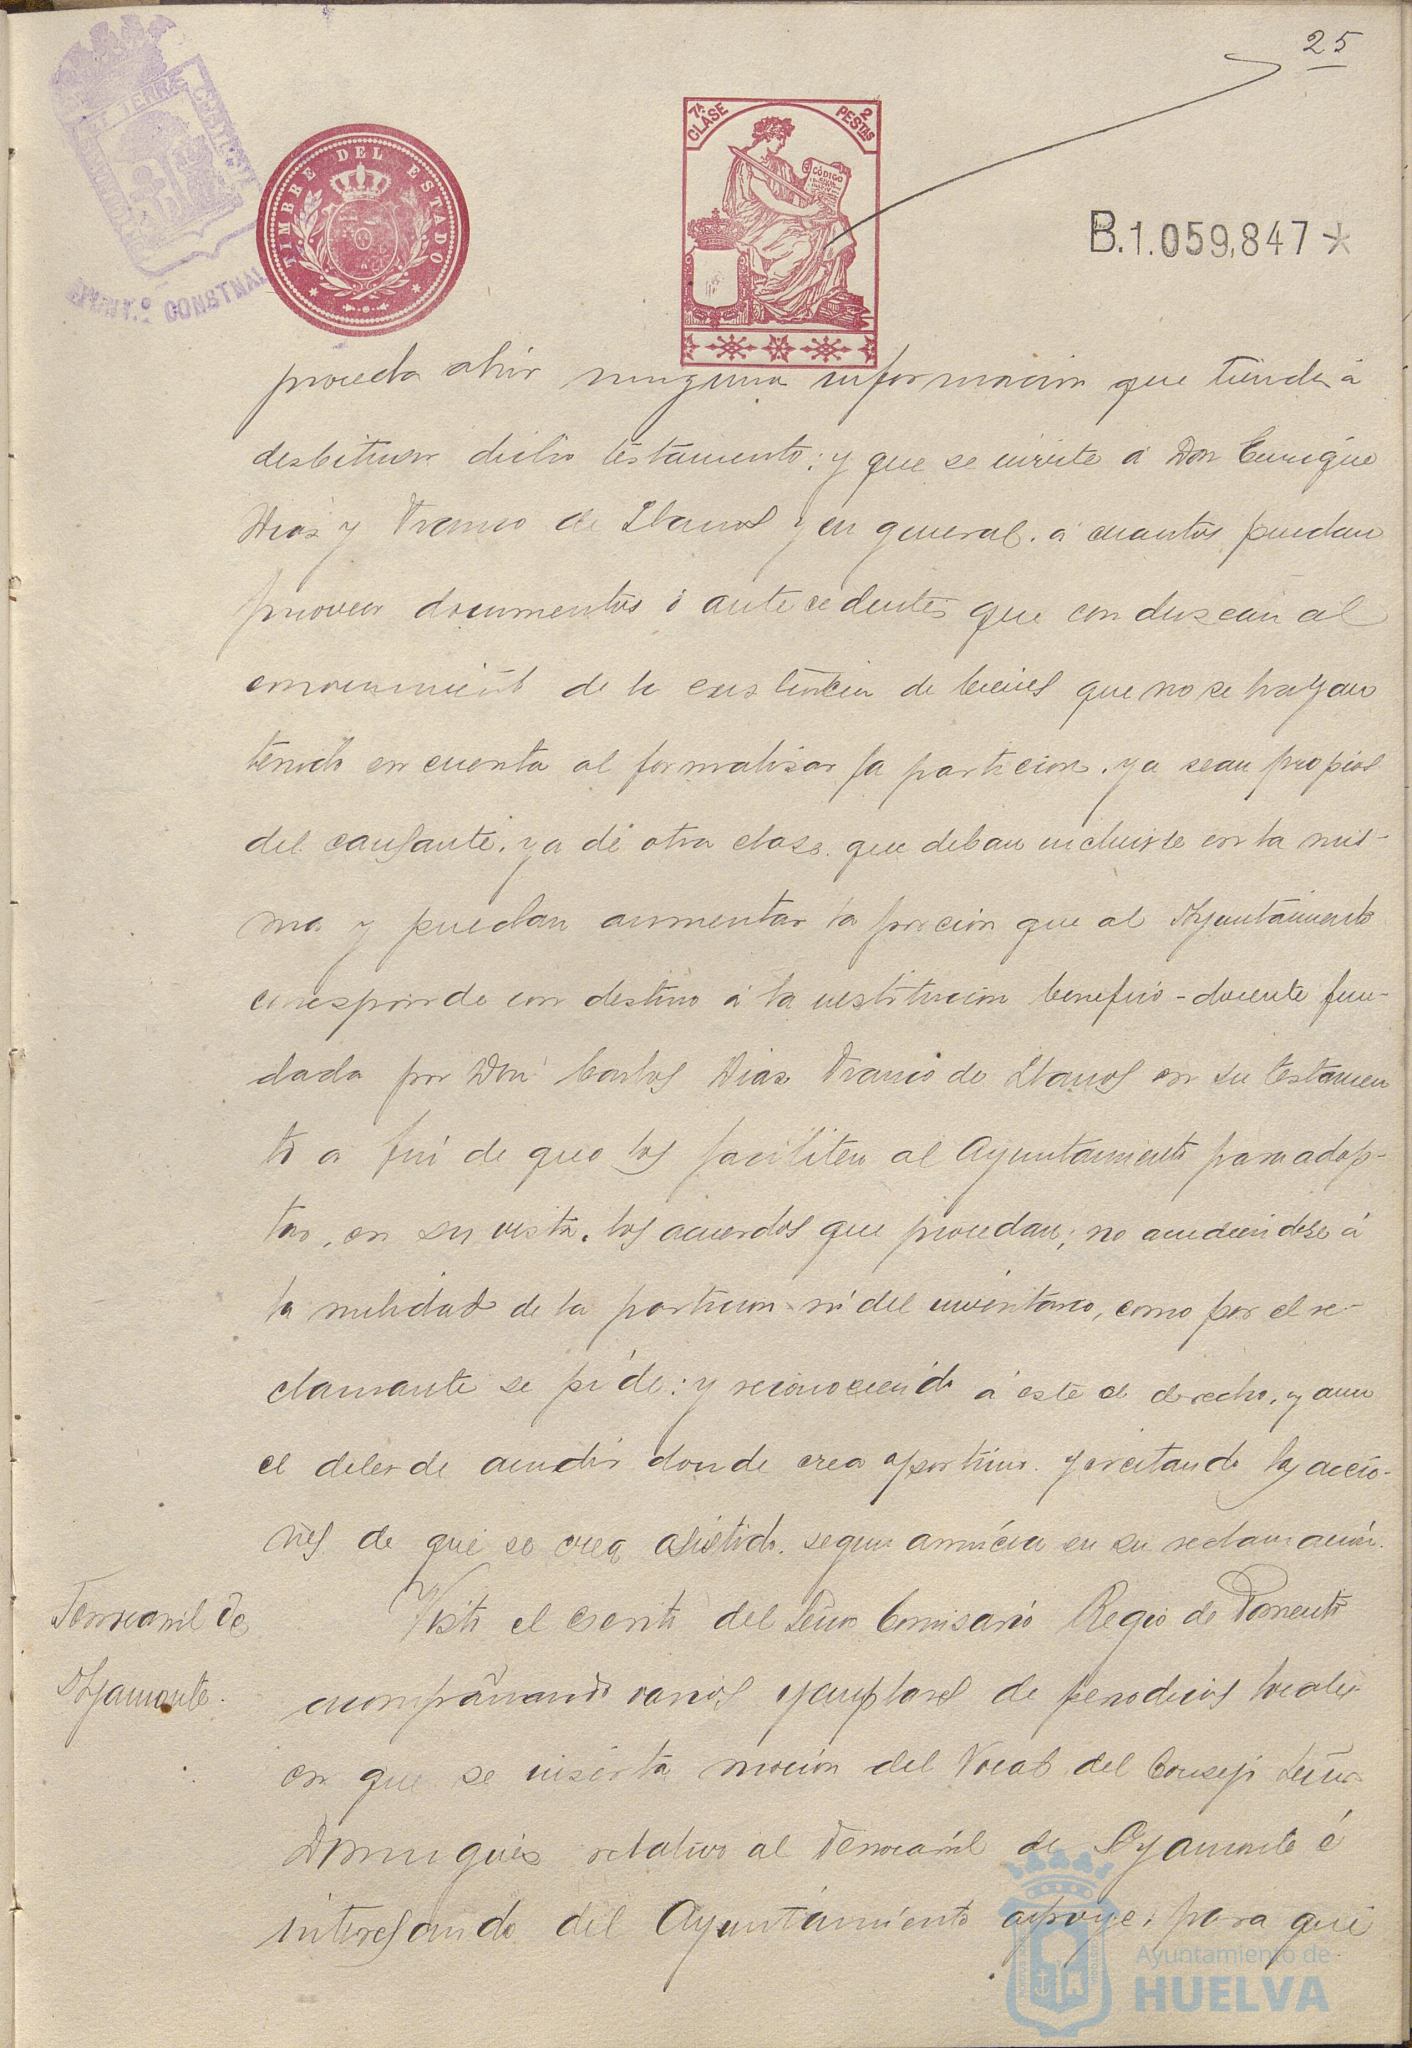 25
PORTUS MARIS ET TERRÆ CUSTODIA
AYUNT.º CONSTNAL
TIMBRE DEL ESTADO
7ª CLASE
2 PESTAS
CÓDIGO
B.1.059,847*
proceda abrir ninguna informacion que tienda á
desvirtuar dicho testamento; y que se invite á Don Enrique
Dias y Franco de Llanos y en general. á cuantos puedan
proveer documentos ó antecedentes que conduscan al
conocimiento de la existencia de bienes que no se hayan
tenido en cuenta al formalisar la particion. ya sean propios
del causante. ya de otra clase. que deban incluirse en la mis-
ma y puedan aumentar la porcion que al Ayuntamiento
corresponde con destino á la institucion benefico-docente fun-
dada por Don Carlos Dias Franco de Llanos en su testamen
to a fin de que los faciliten al Ayuntamiento para adop-
tar, en su vista. los acuerdos que procedan; no accediendose á
la nulidad de la particion ni del inventario, como por el re-
clamante se pide: y reconociendo á este el derecho, y aun
el deber de acudir donde crea oportuno. ejercitando las accio-
nes de que se crea asistido. segun anuncia en su reclamación.
Ferrocarril de
Ayamonte.
Visto el escrito del Señor Comisario Regio de Fomento
acompañando varios ejemplares de periodicos locales
en que se inserta mocion del Vocal del Consejo Señor
Dominguez relativo al Ferrocarril de Ayamonte é
interesando del Ayuntamiento apoye. para que
Ayuntamiento de
HUELVA